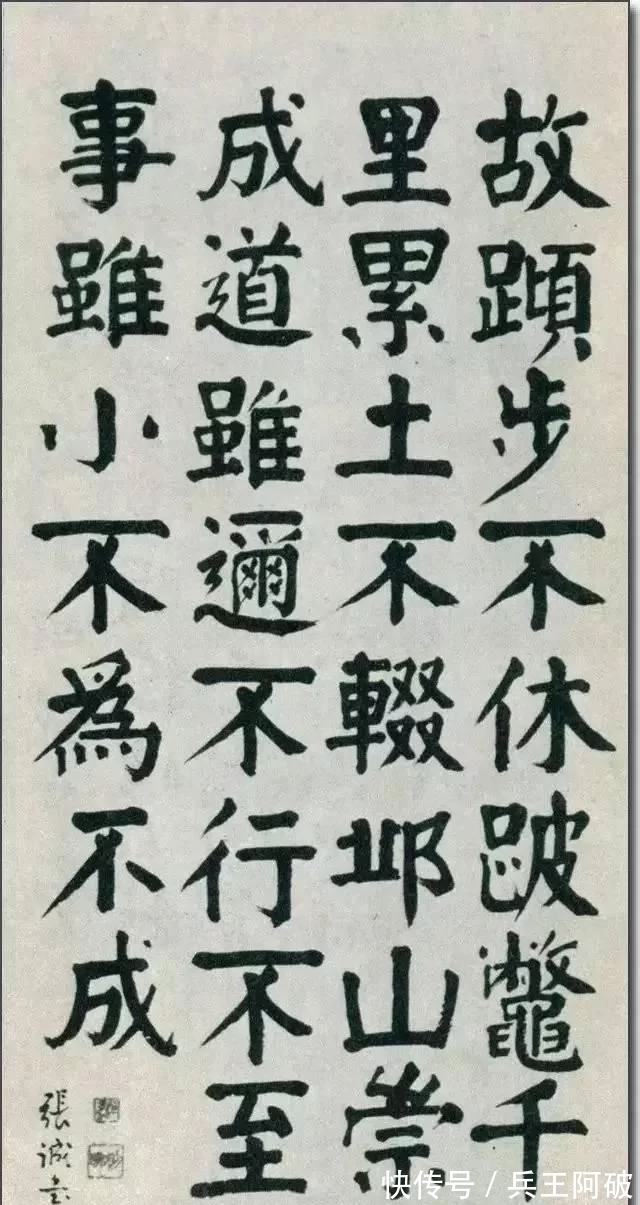 故蹞步不休跛鼈千
里累土不輟邱山崇
成道雖邇不行不至
事雖小不為不成
張誠
快传号 / 兵王阿破